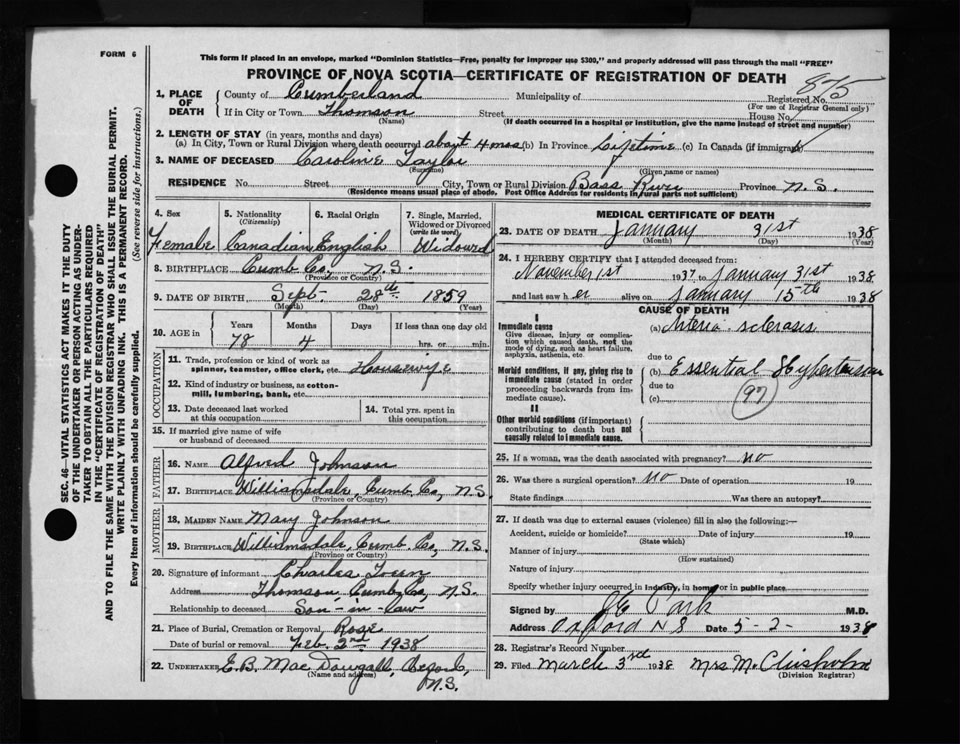 FORM 6
This form if placed in an envelope, marked "Dominion Statistics—Free, penalty for improper use $300," and properly addressed will pass through the mail "FREE"
PROVINCE OF NOVA SCOTIA—CERTIFICATE OF REGISTRATION OF DEATH
875
1. PLACE OF DEATH
County of Cumberland Municipality of Registered No.
(For use of Registrar General only)
If in City or Town Thomson Street House No.
(Name) (If death occurred in a hospital or institution, give the name instead of street and number)
2. LENGTH OF STAY (in years, months and days)
(a) In City, Town or Rural Division where death occurred about 4 mos (b) In Province Lifetime (c) In Canada (if immigrant)
3. NAME OF DECEASED Caroline Taylor
(Surname) (Given name or names)
RESIDENCE No. Street City, Town or Rural Division Bass River Province N.S.
(Residence means usual place of abode. Post Office Address for residents in rural parts not sufficient)
4. Sex Female
5. Nationality (Citizenship) Canadian
6. Racial Origin English
7. Single, Married, Widowed or Divorced (write the word) Widowed
8. BIRTHPLACE Cumb Co, N.S.
(Province or Country)
9. DATE OF BIRTH Sept 28th 1859
(Month) (Day) (Year)
10. AGE in Years 78 Months 4 Days If less than one day old hrs. or min.
OCCUPATION
11. Trade, profession or kind of work as spinner, teamster, office clerk, etc. Housewife
12. Kind of industry or business, as cotton-mill, lumbering, bank, etc.
13. Date deceased last worked at this occupation
14. Total yrs. spent in this occupation
15. If married give name of wife or husband of deceased
FATHER
16. NAME Alfred Johnson
17. BIRTHPLACE Williamsdale, Cumb Co, N.S.
(Province or Country)
MOTHER
18. MAIDEN NAME Mary Johnson
19. BIRTHPLACE Williamsdale, Cumb Co, N.S.
(Province or Country)
20. Signature of informant Charles
Address Thomson Cumb Co, N.S.
Relationship to deceased Son-in-law
21. Place of Burial, Cremation or Removal Rose
Date of burial or removal Feb. 2nd 1938
22. UNDERTAKER E.B. MacDougall,
(Name and address)
N.S.
MEDICAL CERTIFICATE OF DEATH
23. DATE OF DEATH January 31st 1938
(Month) (Day) (Year)
24. I HEREBY CERTIFY that I attended deceased from:
November 1st 1937 to January 31st 1938
and last saw her alive on January 15th 1938
CAUSE OF DEATH
I
Immediate cause
Give disease, injury or complication which caused death, not the mode of dying, such as heart failure, asphyxia, asthenia, etc.
(a) Arterio-sclerosis
due to
Morbid conditions, if any, giving rise to immediate cause (stated in order proceeding backwards from immediate cause).
(b) Essential Hypertension
due to
(c)
97
II
Other morbid conditions (if important) contributing to death but not causally related to immediate cause.
25. If a woman, was the death associated with pregnancy? No
26. Was there a surgical operation? No Date of operation 19
State findings Was there an autopsy?
27. If death was due to external causes (violence) fill in also the following:—
Accident, suicide or homicide? Date of injury 19
(State which)
Manner of injury
(How sustained)
Nature of injury
Specify whether injury occurred in industry, in home or in public place
Signed by Park M.D.
Address Oxford N S Date 5-2- 1938
28. Registrar's Record Number
29. Filed March 3rd 1938 Mrs M. Chisholm
(Division Registrar)
SEC. 46—VITAL STATISTICS ACT MAKES IT THE DUTY
OF THE UNDERTAKER OR PERSON ACTING AS UNDER-
TAKER TO OBTAIN ALL THE PARTICULARS REQUIRED
IN THE "CERTIFICATE OF REGISTRATION OF DEATH"
AND TO FILE THE SAME WITH THE DIVISION REGISTRAR WHO SHALL ISSUE THE BURIAL PERMIT.
WRITE PLAINLY WITH UNFADING INK. THIS IS A PERMANENT RECORD.
Every item of information should be carefully supplied. (See reverse side for instructions.)